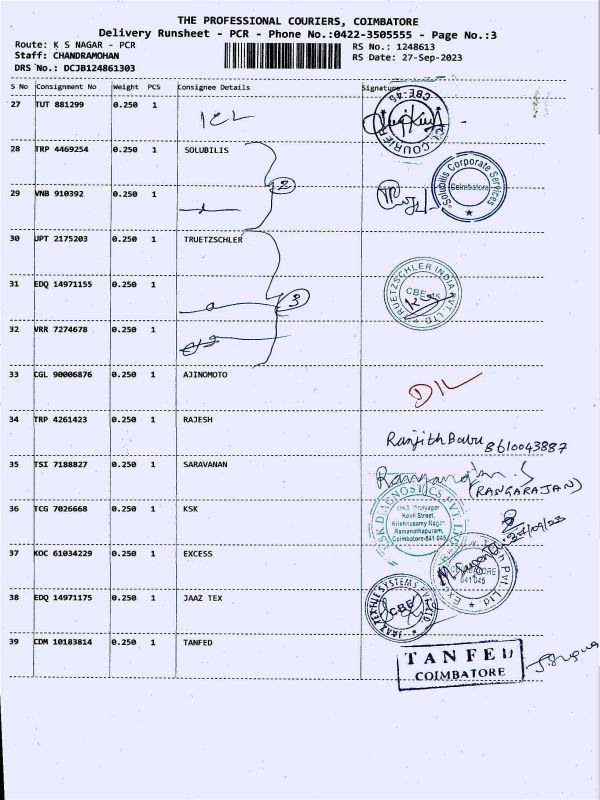 THE PROFESSIONAL COURIERS, COIMBATORE
Delivery Runsheet - PCR - Phone No.:0422-3505555 - Page No.:3
Route: K S NAGAR - PCR
RS No.: 1248613
Staff: CHANDRAMOHAN
RS Date: 27-Sep-2023
DRS No.: DCJB124861303
S No Consignment No Weight PCS Consignee Details Signature
27 TUT 881299 0.250 1 ICL
CBE-45
COURIER
28 TRP 4469254 0.250 1 SOLUBILIS
2
Solubilis Corporate Services
Coimbatore
29 VNB 910392 0.250 1
30 UPT 2175203 0.250 1 TRUETZSCHLER
31 EDQ 14971155 0.250 1
3
TRUETZSCHLER INDIA PVT. LTD.
CBE-45
32 VRR 7274678 0.250 1
33 CGL 90006876 0.250 1 AJINOMOTO
34 TRP 4261423 0.250 1 RAJESH
Ranjith Babu 8610043887
35 TSI 7188827 0.250 1 SARAVANAN
(RANGARAJAN)
36 TCG 7026668 0.250 1 KSK
KSK DIAGNOSTICS PVT LTD
Kovil Street,
Krishnasamy Nagar,
Ramanathapuram,
Coimbatore-641 045
37 KOC 61034229 0.250 1 EXCESS
641 045
Pvt. Ltd.
38 EDQ 14971175 0.250 1 JAAZ TEX
JAAZ TEXTILE SYSTEMS PVT. LTD.
CBE
39 CDM 10183814 0.250 1 TANFED
TANFED
COIMBATORE